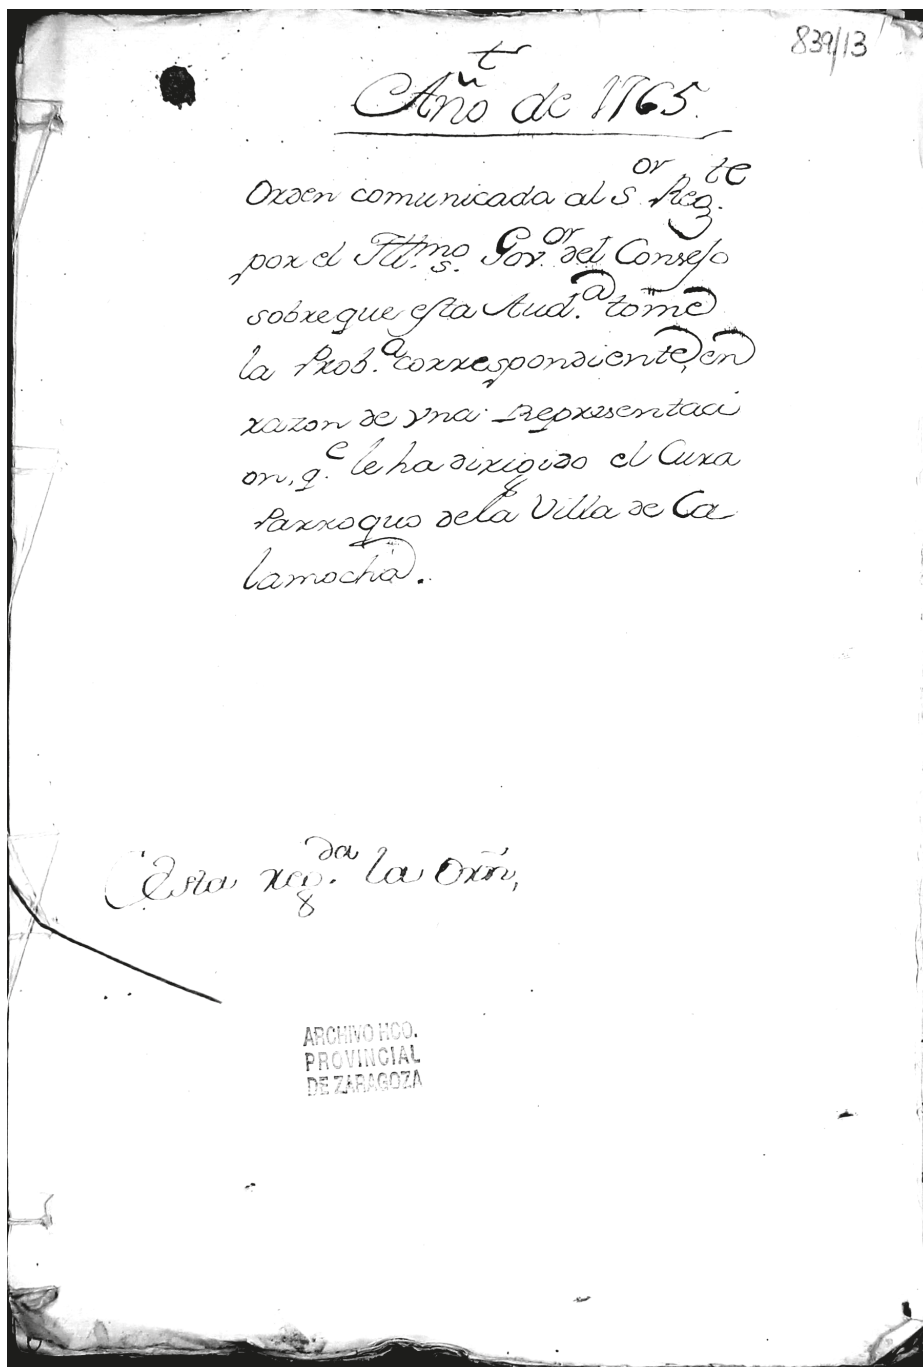 839/13
t
Año de 1765.
Orden comunicada al S.or Reg.te
por el Ill.mo S. Gov.or del Consejo
sobre que esta Aud.a tome
la Prob.a correspondiente, en
razon de vna Representaci
on, q.e le ha dirigido el Cura
Parroquo dela Villa de Ca
lamocha.
Esta reg.da la Orñ,
ARCHIVO HCO.
PROVINCIAL
DE ZARAGOZA